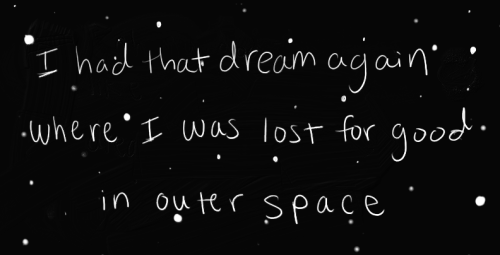 I had that dream again
where I was lost for good
in outer space